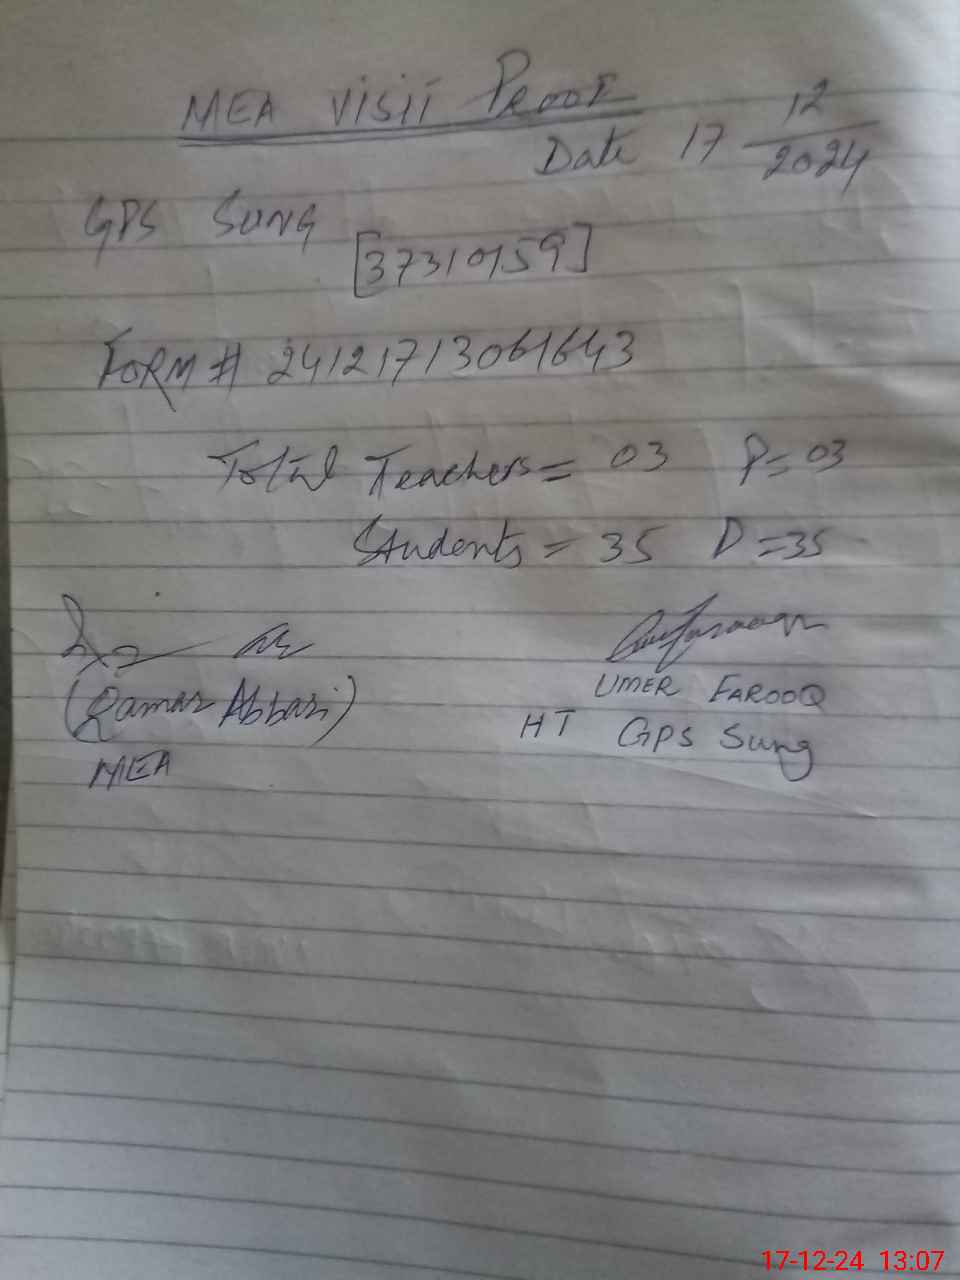 MEA Visit Proof
Date 17 12/2024
GPS Sung
[37310159]
Form # 24121713061643
Total Teachers = 03 P = 03
Students = 35 D = 35
(Qamar Abbasi)
UMER FAROOQ
MEA
HT GPS Sung
17-12-24 13:07